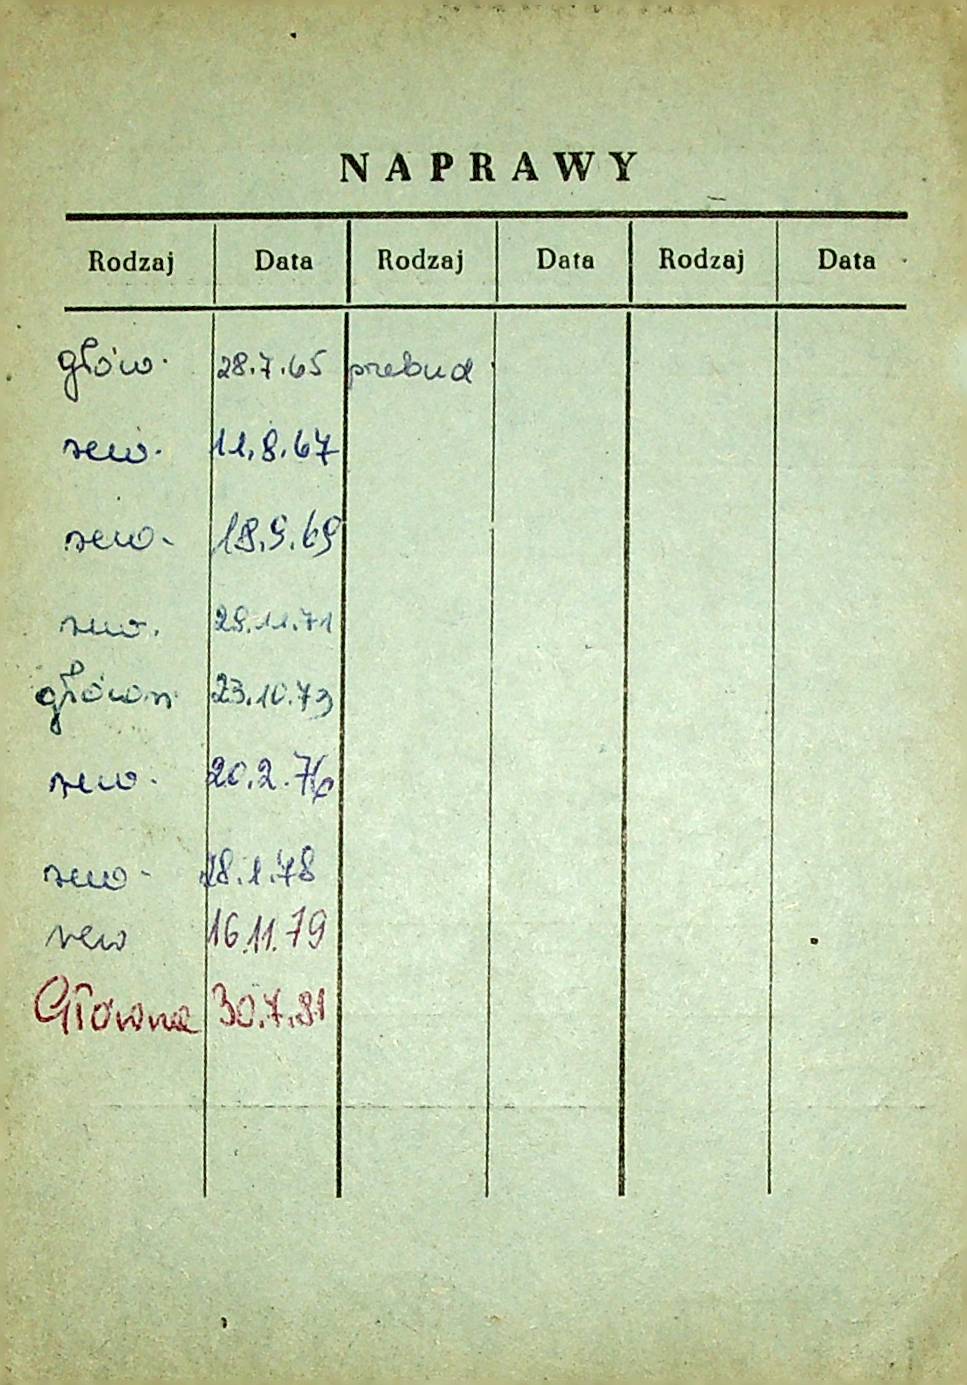 NAPRAWY
Rodzaj Data Rodzaj Data Rodzaj Data
głów. 28.7.65 przebud
rew. 11.8.67
rew. 18.9.69
rew. 29.11.71
główn. 23.10.73
rew. 20.2.76
rew. 28.1.78
rew 16.11.79
Główna 30.7.81